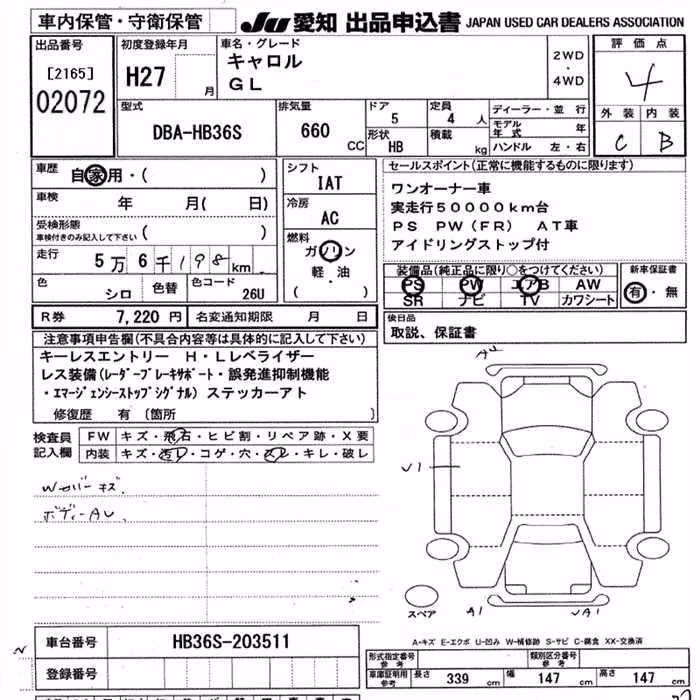 車内保管・守衛保管
JU 愛知 出品申込書 JAPAN USED CAR DEALERS ASSOCIATION
出品番号 [2165] 02072
初度登録年月 H27 月
車名・グレード キャロル GL
2WD・4WD
評価点 4
外装 C 内装 B
型式 DBA-HB36S
排気量 660 CC
ドア 5
定員 4 人
形状 HB
積載 kg
ディーラー・並行
モデル年式 年
ハンドル 左・右
車歴 自家用・( )
車検 年 月( 日)
受検形態 車検付きのみ記入して下さい ( )
走行 5万6千198km
色 シロ 色替 色コード 26U
シフト IAT
冷房 AC
燃料 ガソリン 軽・油 ( )
セールスポイント(正常に機能するものに限ります)
ワンオーナー車
実走行50000km台
PS PW(FR) AT車
アイドリングストップ付
装備品(純正品に限り○をつけてください)
PS PW エアB AW
SR ナビ TV カワシート
新車保証書 有・無
R券 7,220 円 名変通知期限 月 日
後日品
取説、保証書
注意事項申告欄(不具合内容等は具体的に記入して下さい)
キーレスエントリー H・Lレベライザー
レス装備(レーダーブレーキサポート・誤発進抑制機能
・エマージェンシーストップシグナル)ステッカーアト
修復歴 有 〔箇所 〕
検査員記入欄
FW キズ・飛石・ヒビ割・リペア跡・X要
内装 キズ・汚レ・コゲ・穴・スレ・キレ・破レ
Wカバーキズ
ボディーAU
AU
U1
A1
UA1
スペア
A-キズ E-エクボ U-凹み W-補修跡 S-サビ C-腐食 XX-交換済
車台番号 HB36S-203511
登録番号
形式指定番号 参考
類別区分番号 参考
車庫証明用 参考 長さ 339 cm 幅 147 cm 高さ 147 cm